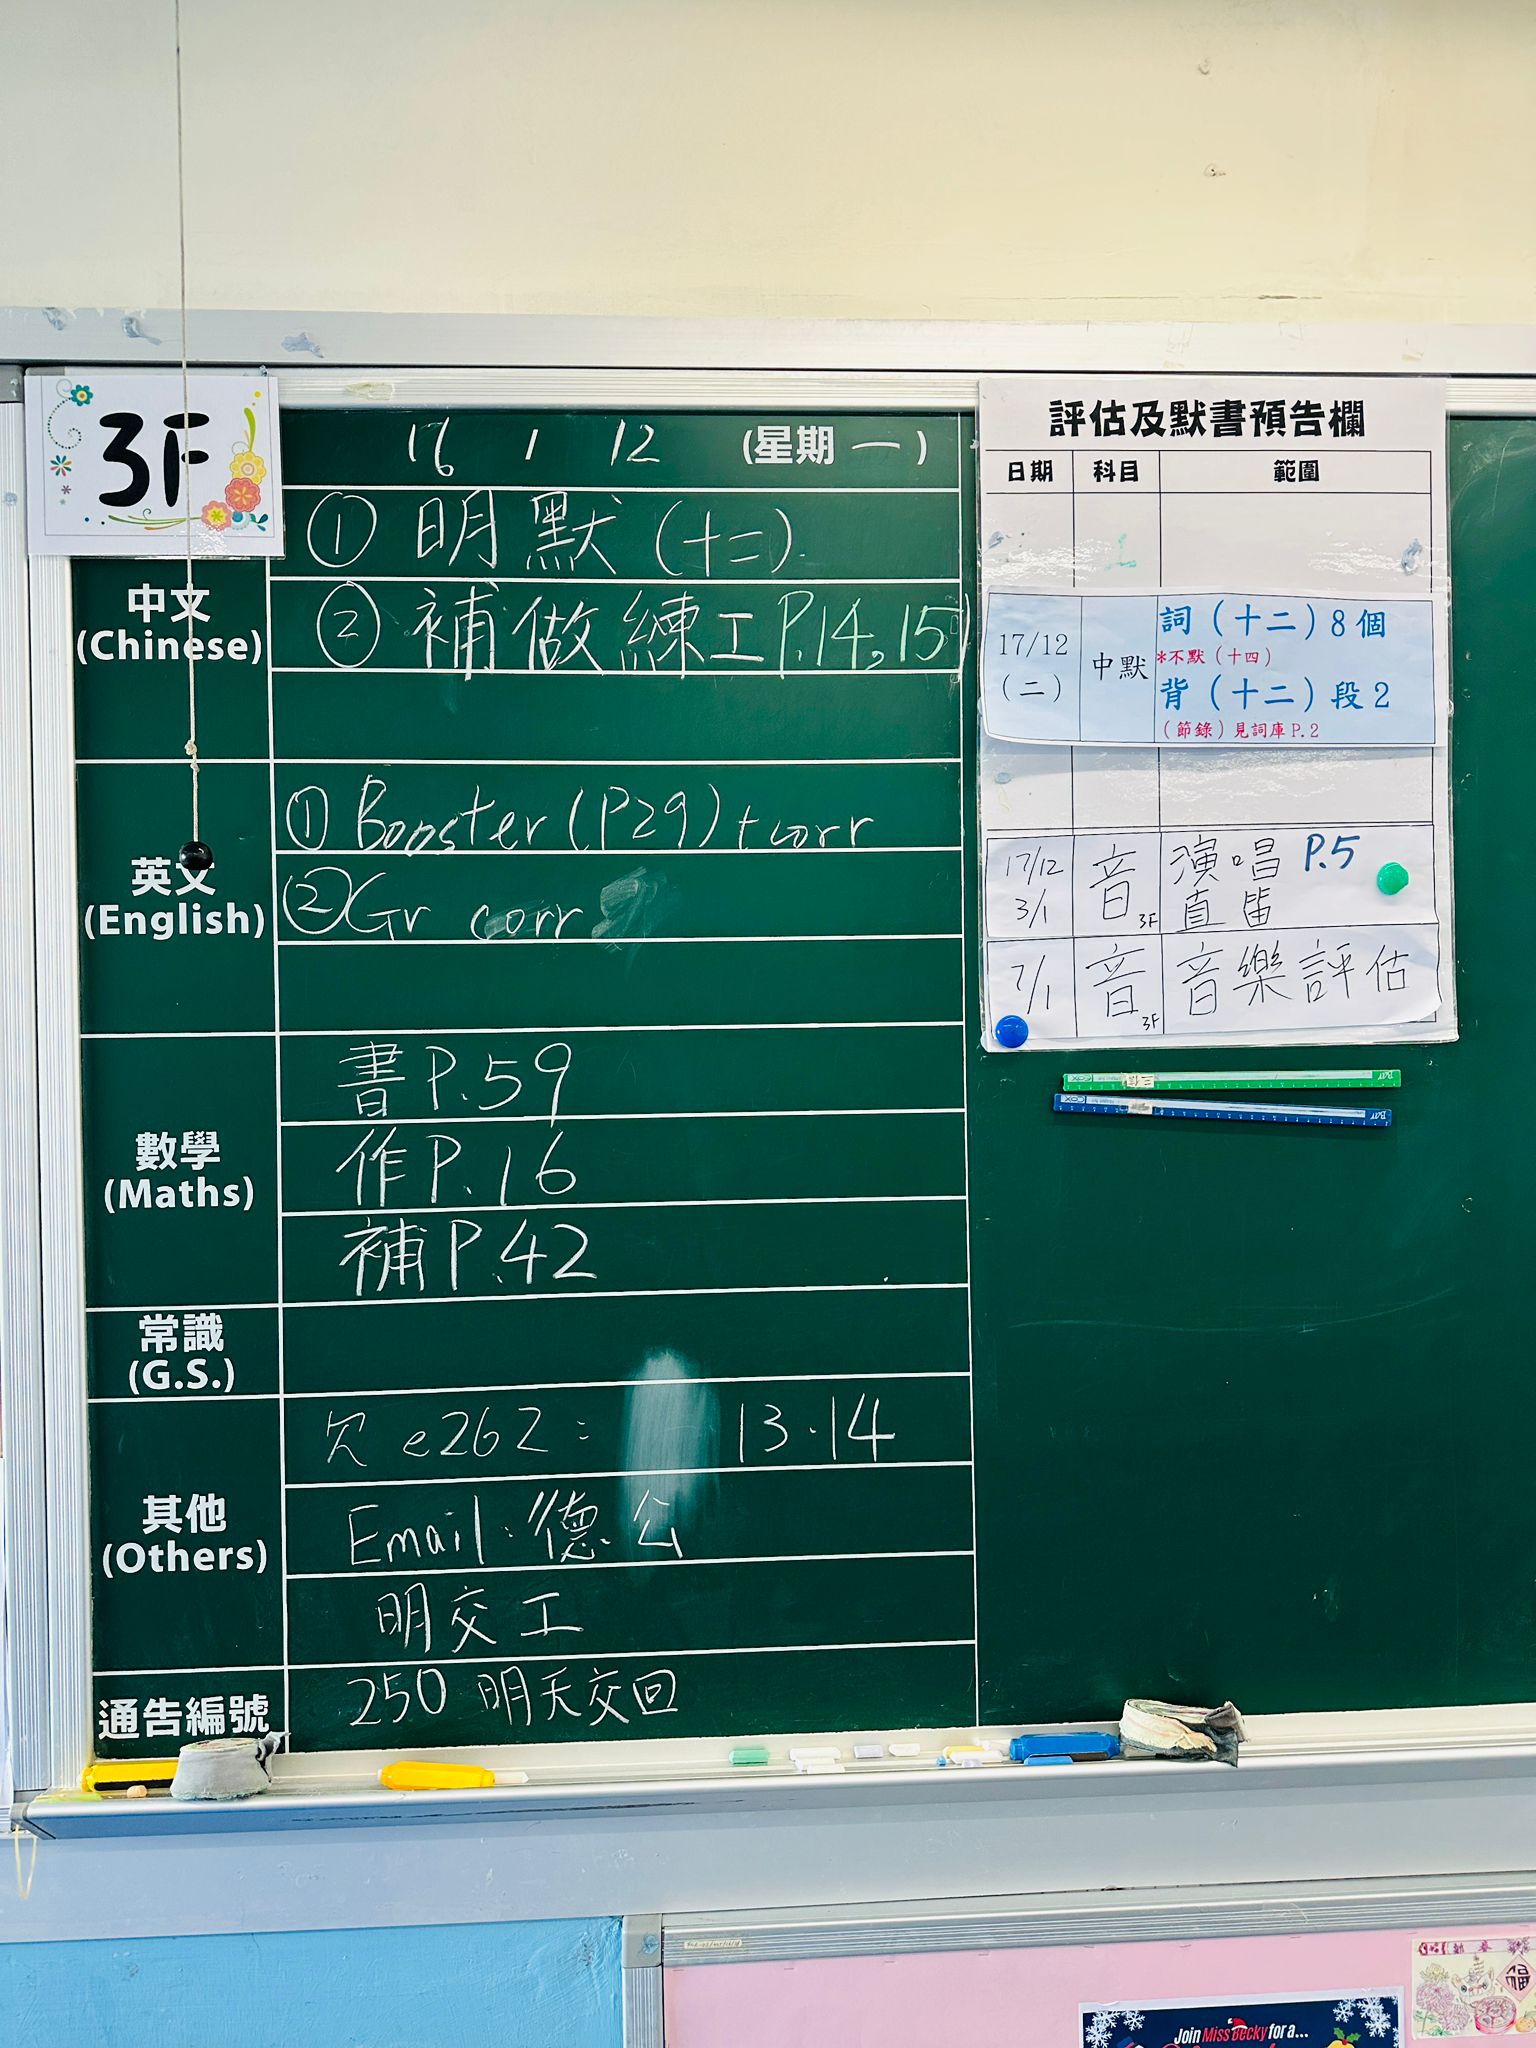 3F
16 / 12 (星期一)
中文
(Chinese)
① 明默(十二)
② 補做練工P.14,15
英文
(English)
① Booster(P29)+corr
② Gr corr
數學
(Maths)
書P.59
作P.16
補P.42
常識
(G.S.)
其他
(Others)
欠 e262: 13.14
Email:德公
明交工
通告編號
250 明天交回
評估及默書預告欄
日期 科目 範圍
17/12
(二)
中默
詞(十二)8個
*不默(十四)
背(十二)段2
(節錄)見詞庫P.2
17/12
3/1
音 3F
演唱 P.5
直笛
7/1 音 3F 音樂評估
Join Miss Becky for a...
福